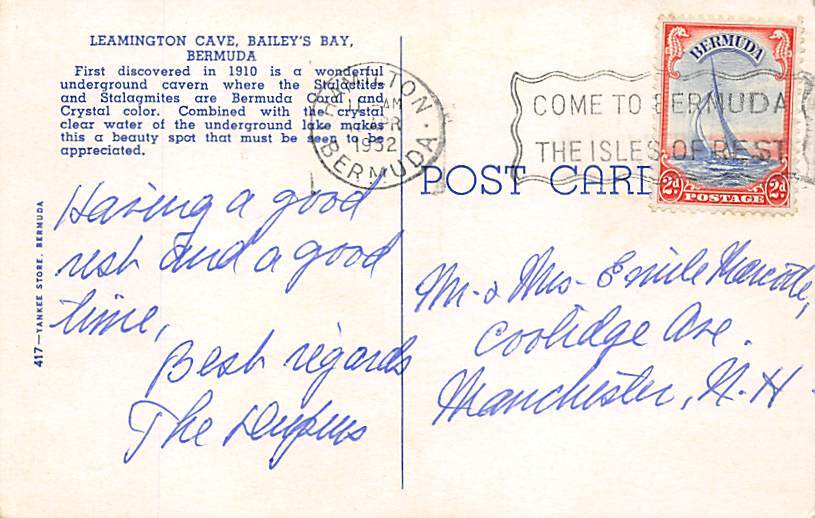 LEAMINGTON CAVE, BAILEY'S BAY,
BERMUDA
First discovered in 1910 is a wonderful
underground cavern where the Stalactites
and Stalagmites are Bermuda Coral and
Crystal color. Combined with the crystal
clear water of the underground lake makes
this a beauty spot that must be seen to be
appreciated.
417—YANKEE STORE, BERMUDA
HAMILTON
AM
APR
1952
BERMUDA
COME TO BERMUDA
THE ISLES OF REST
BERMUDA
2d 2d
POSTAGE
POST CARD
Having a good
rest and a good
time,
Best regards
The
Mr. & Mrs. Emile
Coolidge Ave.
Manchester, N.H.